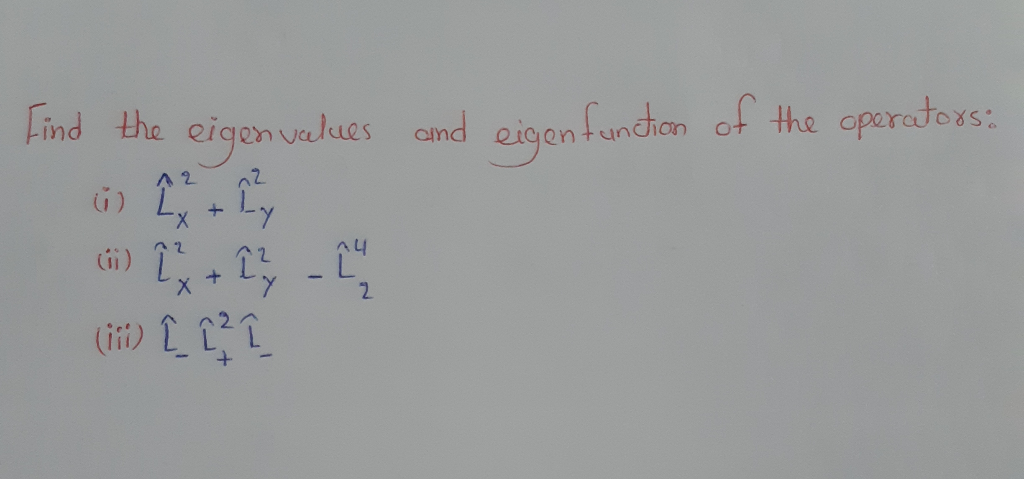 Find the eigenvalues and eigenfunction of the operators:
(i) L̂x² + L̂y²
(ii) L̂x² + L̂y² - L̂₂⁴
(iii) L̂₋ L̂₊² L̂₋